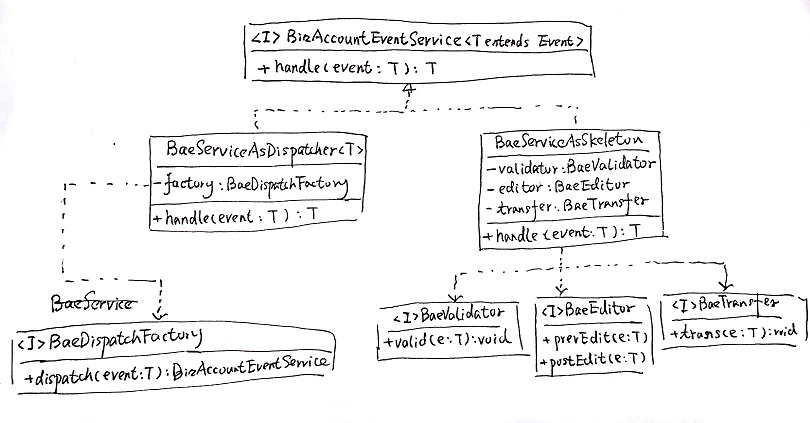 <I> BizAccountEventService<T extends Event>
+ handle(event: T): T
BaeServiceAsDispatcher<T>
- factory: BaeDispatchFactory
+ handle(event: T): T
BaeServiceAsSkeleton
- validator: BaeValidator
- editor: BaeEditor
- transfer: BaeTransfer
+ handle(event: T): T
BaeService
<I> BaeDispatchFactory
+ dispatch(event: T): BizAccountEventService
<I> BaeValidator
+ valid(e: T): void
<I> BaeEditor
+ prevEdit(e: T)
+ postEdit(e: T)
<I> BaeTransfer
+ trans(e: T): void